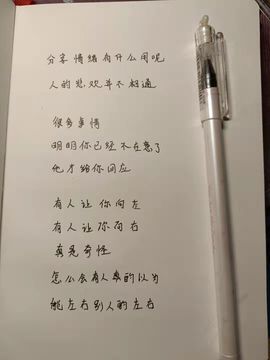 分享情绪有什么用呢
人的悲欢并不相通
很多事情
明明你已经不在意了
他才给你回应
有人让你向左
有人让你向右
真是奇怪
怎么会有人真的以为
能左右别人的左右